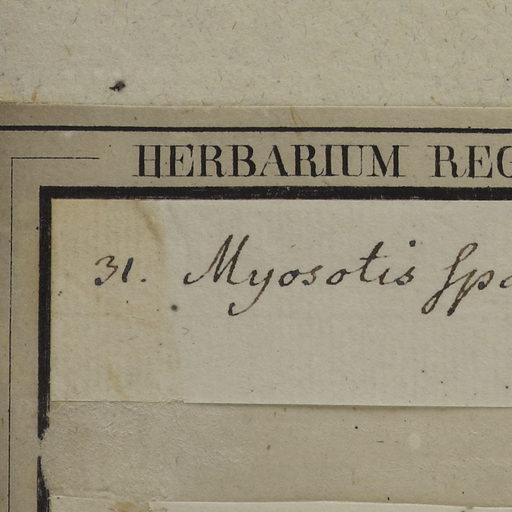 HERBARIUM REG
31. Myosotis spa